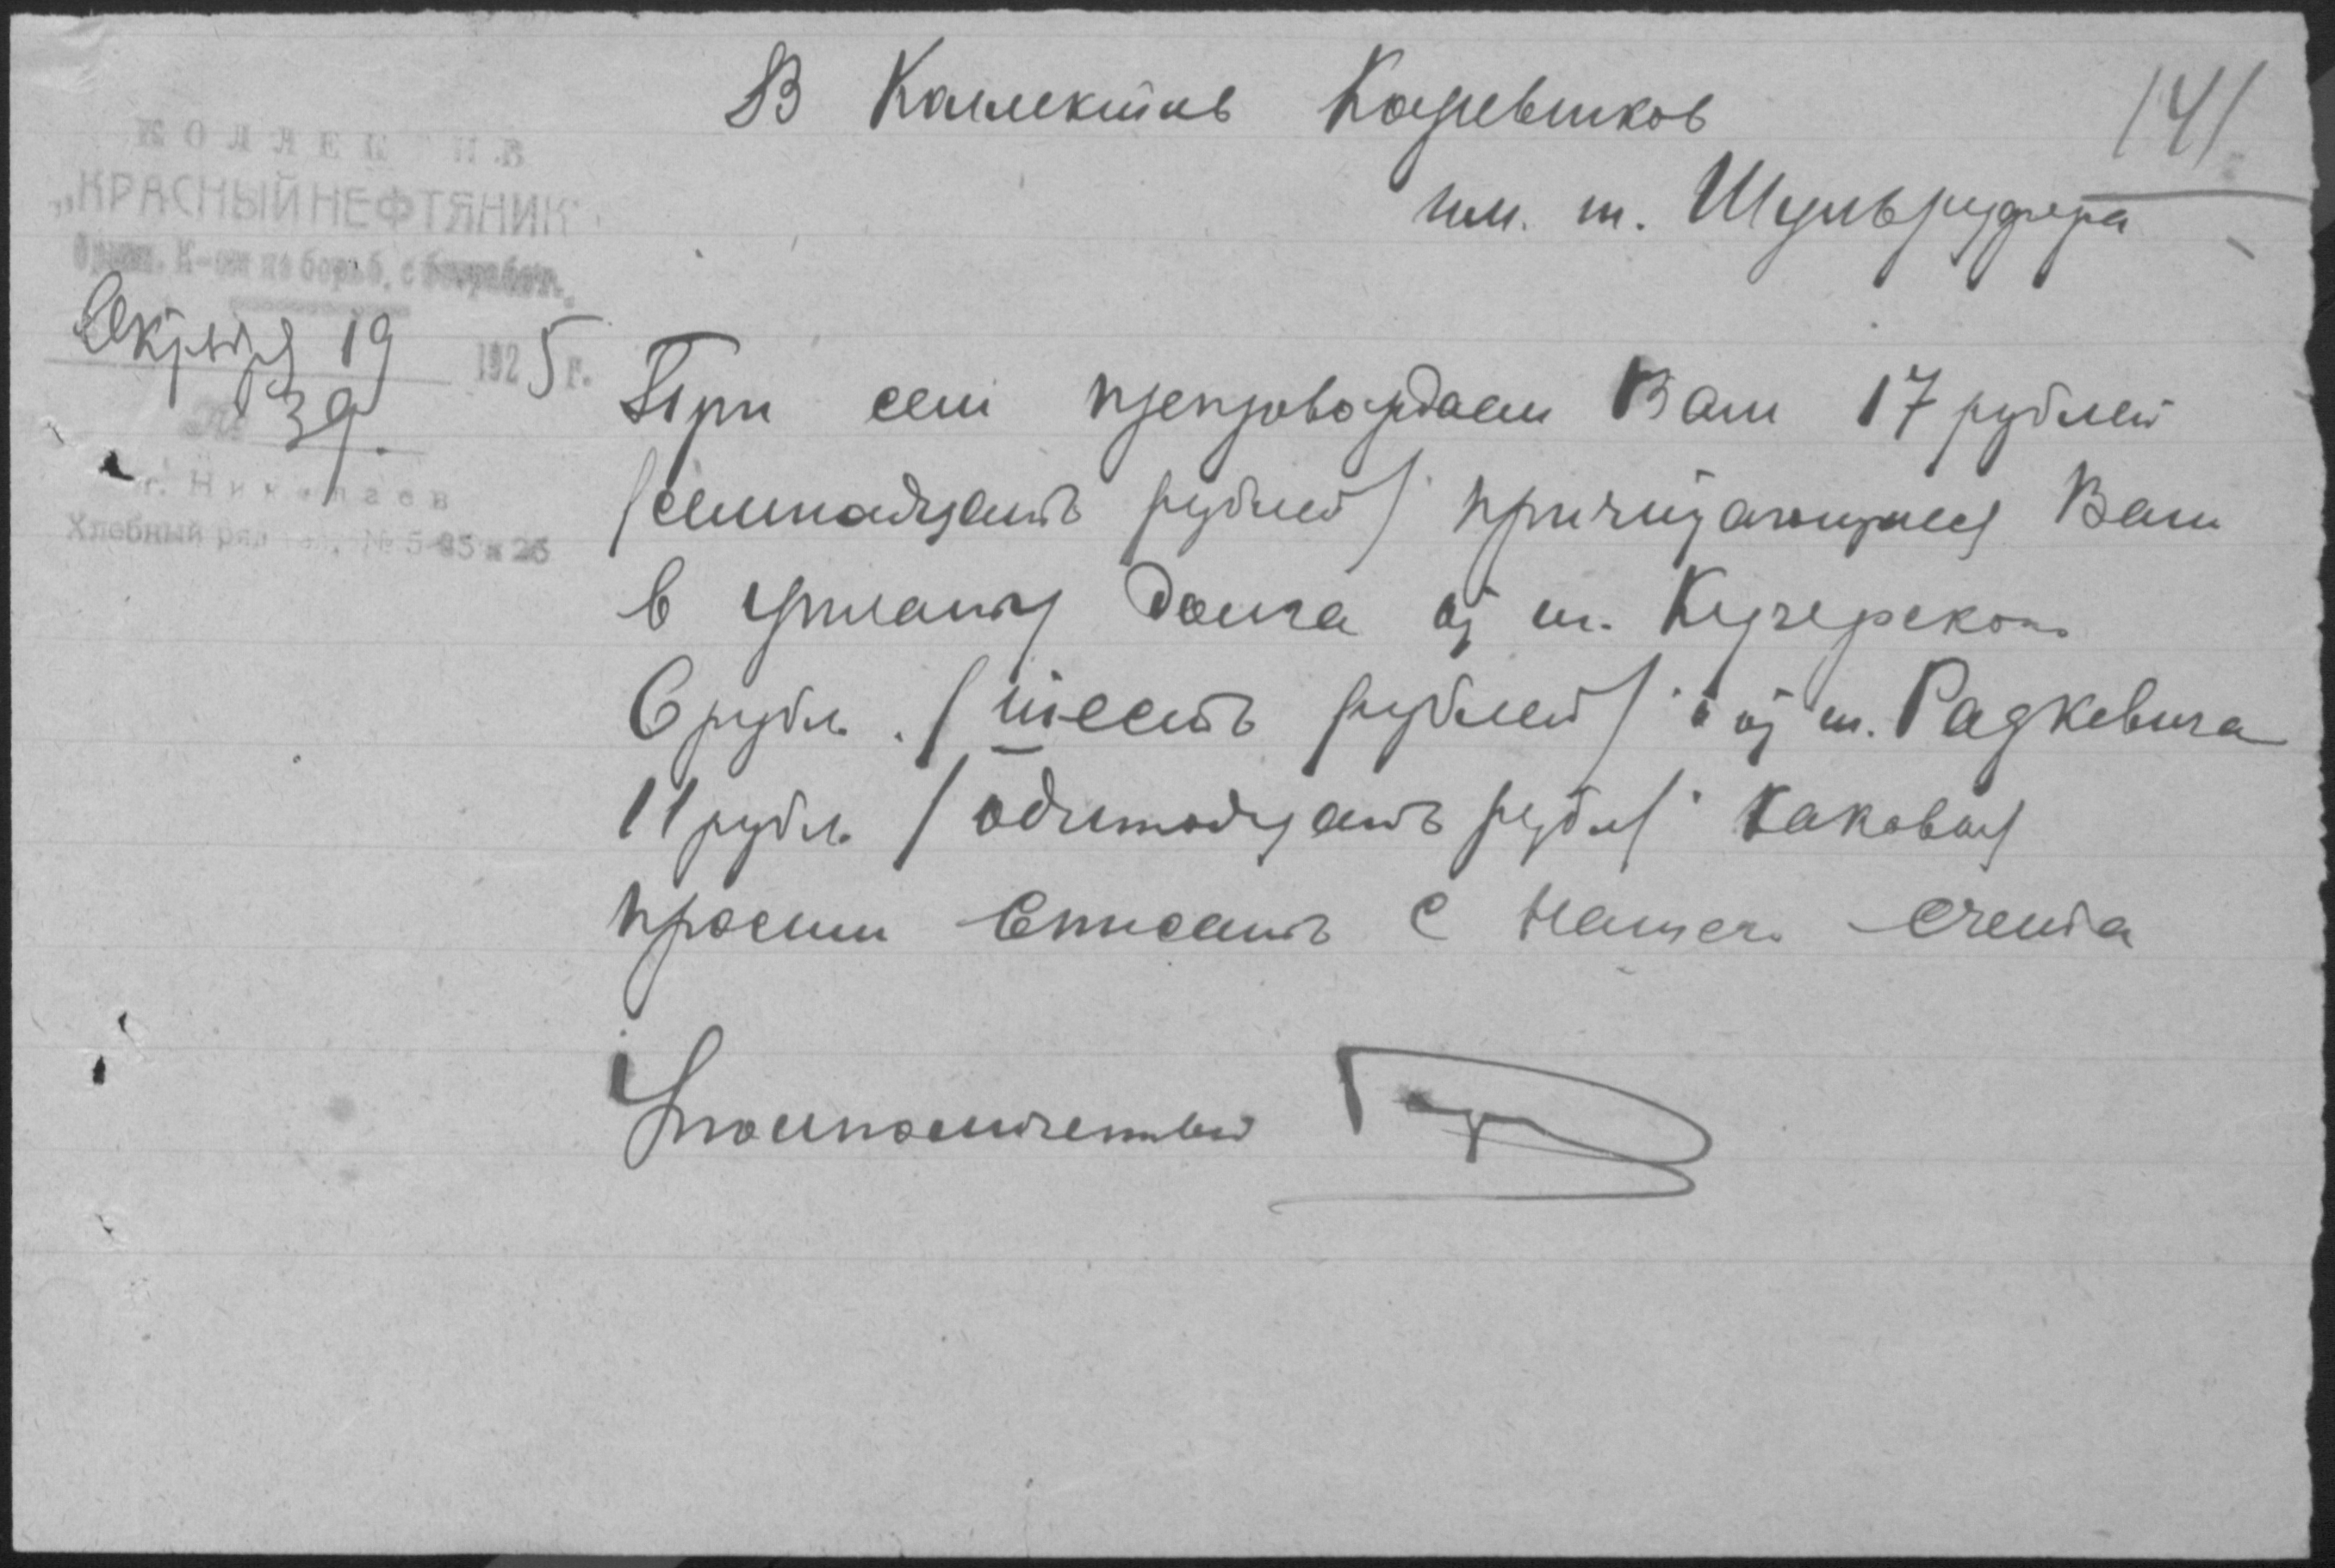 141
В Коллектив Кожевников
им. т. Шульруфера
КОЛЛЕКТИВ
„КРАСНЫЙ НЕФТЯНИК"
К-ом по борьб. с безработ.
Октября 19 1925 г.
№ 39.
г. Николаев
Хлебный ряд № 5-25 и 26
При сем препровождаем Вам 17 рублей
/семнадцать рублей/ причитающиеся Вам
в уплату долга от т. Кучерского
6 рубл. /шесть рублей/ и от т. Радкевича
11 рубл. /одинадцать рубл/ каковые
просим списать с нашего счета
Уполномоченный